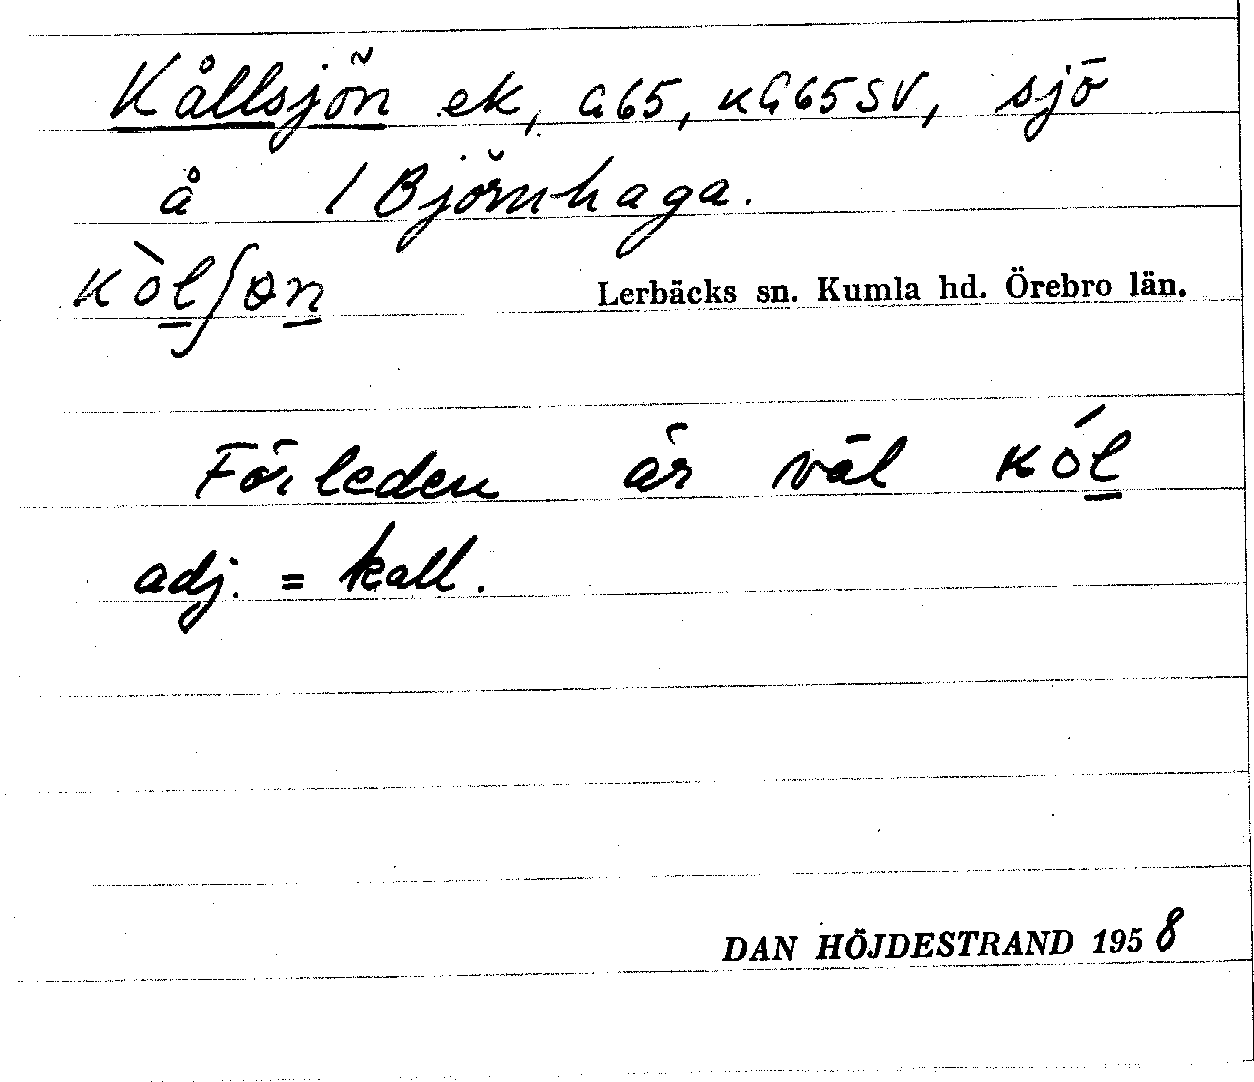 Kållsjön ek, G65, kG65SV, sjö
å 1 Björnhaga.
kòlʃɵn Lerbäcks sn. Kumla hd. Örebro län.
Förleden är väl kól
adj. = kall.
DAN HÖJDESTRAND 1958